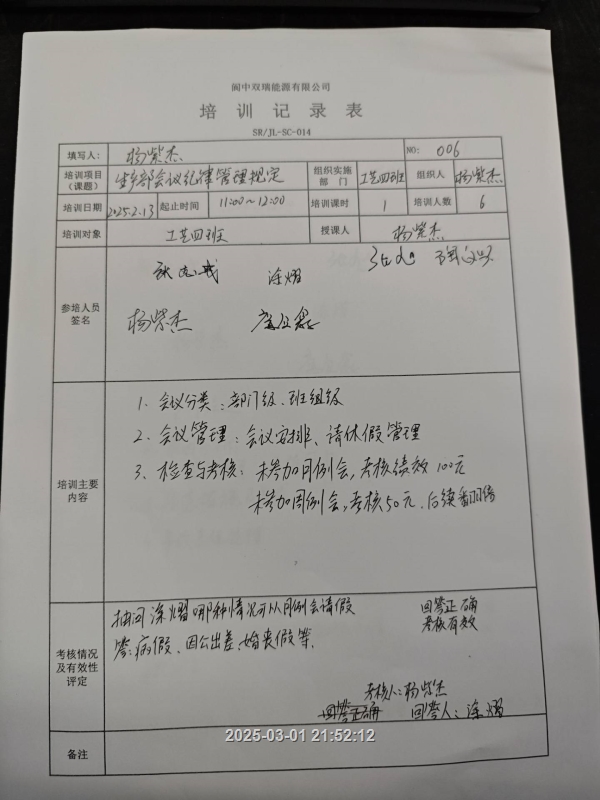 阆中双瑞能源有限公司
培训记录表
SR/JL-SC-014
填写人： 杨紫杰 NO: 006
培训项目（课题） 生产部会议纪律管理规定 组织实施部门 工艺四班 组织人 杨紫杰
培训日期 2025.2.13 起止时间 11:00~12:00 培训课时 1 培训人数 6
培训对象 工艺四班 授课人 杨紫杰
参培人员签名 涂熠
杨紫杰
培训主要内容
1、会议分类：部门级、班组级
2、会议管理：会议安排、请休假管理
3、检查与考核：未参加月例会，考核绩效100元
未参加周例会，考核50元，后续翻倍
考核情况及有效性评定
抽问涂熠哪种情况可以月例会请假 回答正确
答：病假、因公出差、婚丧假等. 考核有效
考核人：杨紫杰
回答正确 回答人：涂熠
备注
2025-03-01 21:52:12